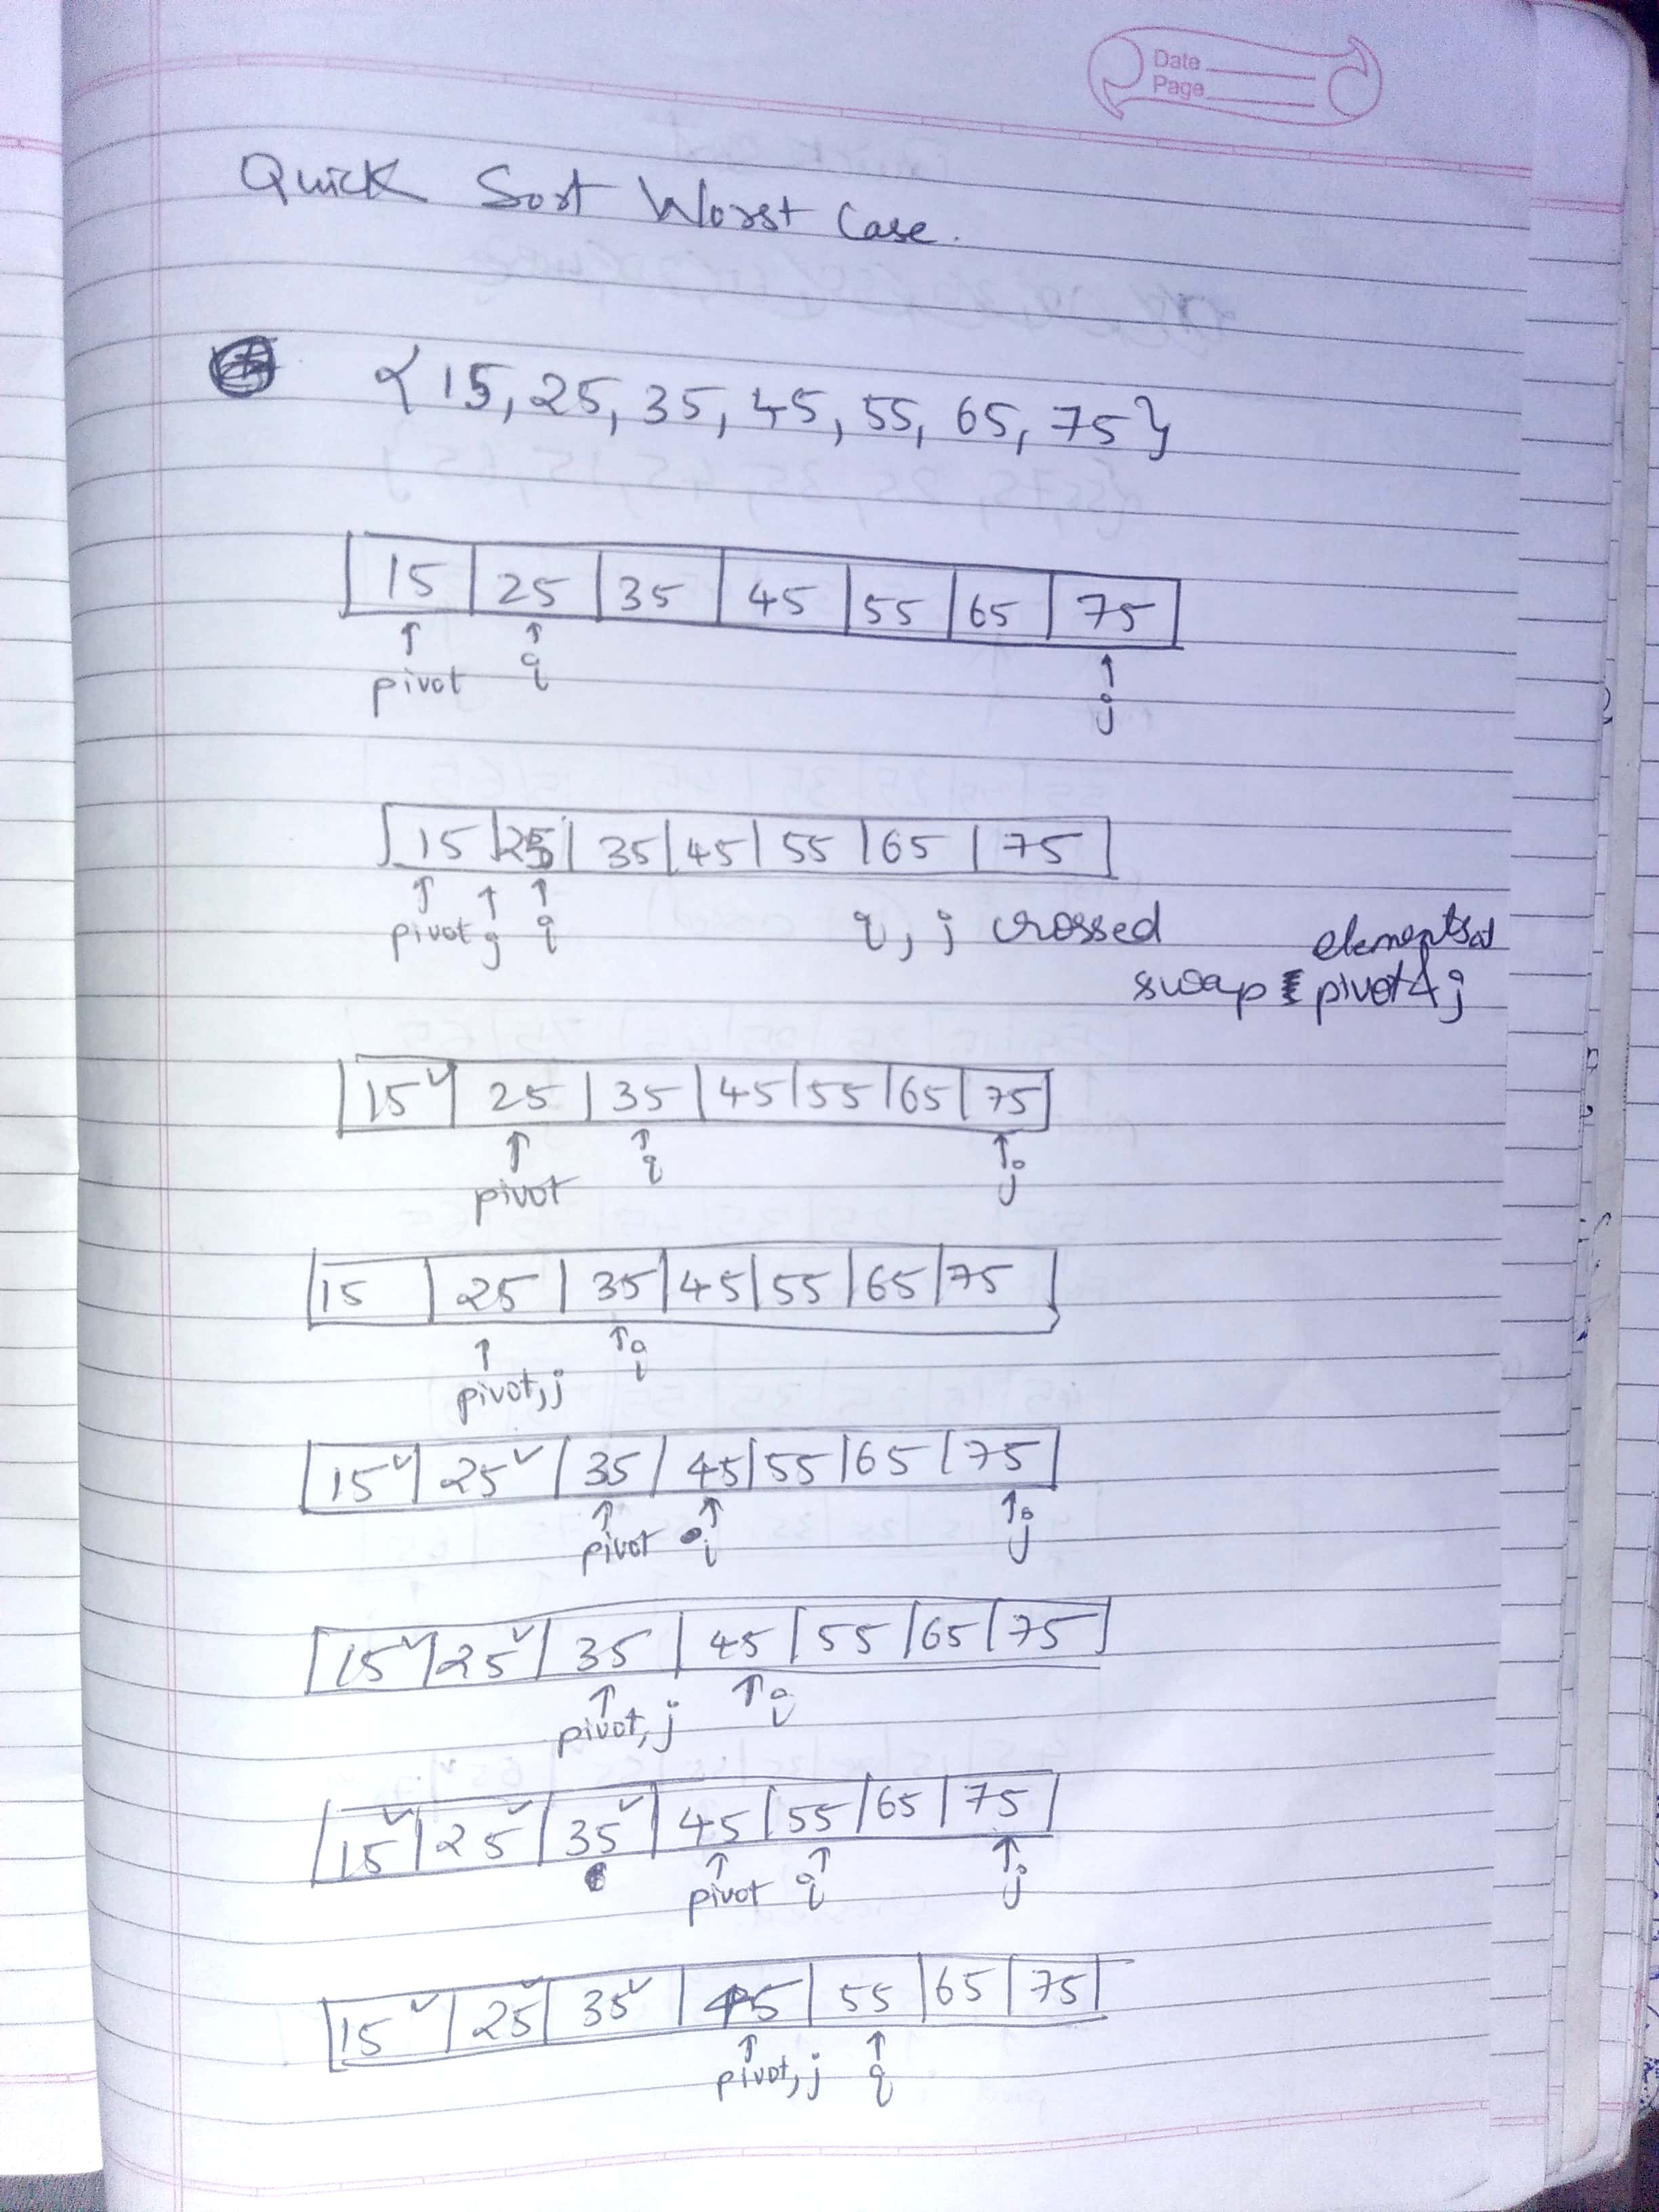 Date
Page
Quick Sort Worst Case.
{15, 25, 35, 45, 55, 65, 75}
15 25 35 45 55 65 75
pivot i j
15 25 35 45 55 65 75
pivot j i i, j crossed
elements at
swap pivot & j
15✓ 25 35 45 55 65 75
pivot i j
15 25 35 45 55 65 75
pivot, j i
15✓ 25✓ 35 45 55 65 75
pivot i j
15✓ 25✓ 35 45 55 65 75
pivot, j i
15✓ 25✓ 35✓ 45 55 65 75
pivot i j
15✓ 25✓ 35✓ 45 55 65 75
pivot, j i